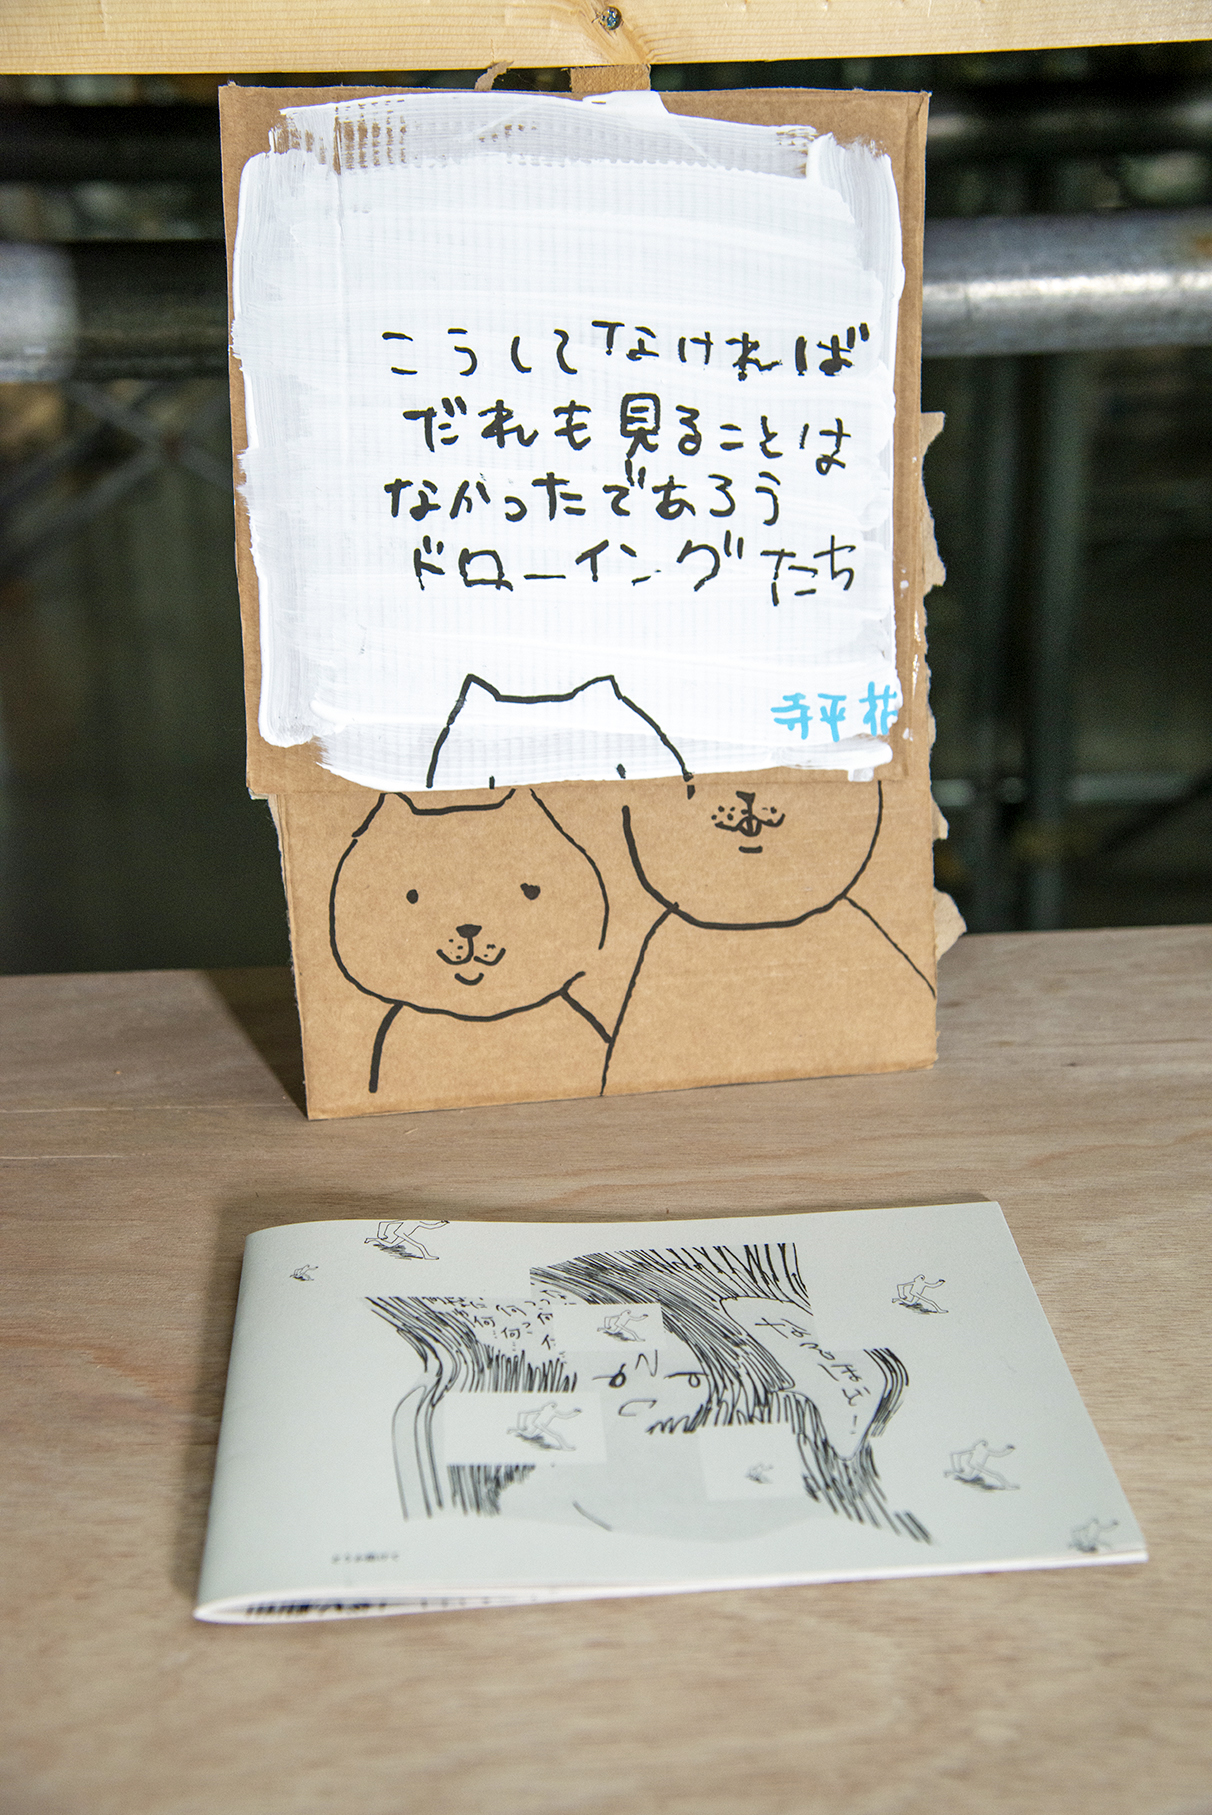 こうしてなければ
だれも見ることは
なかったであろう
ドローイングたち
寺平
何 何
何